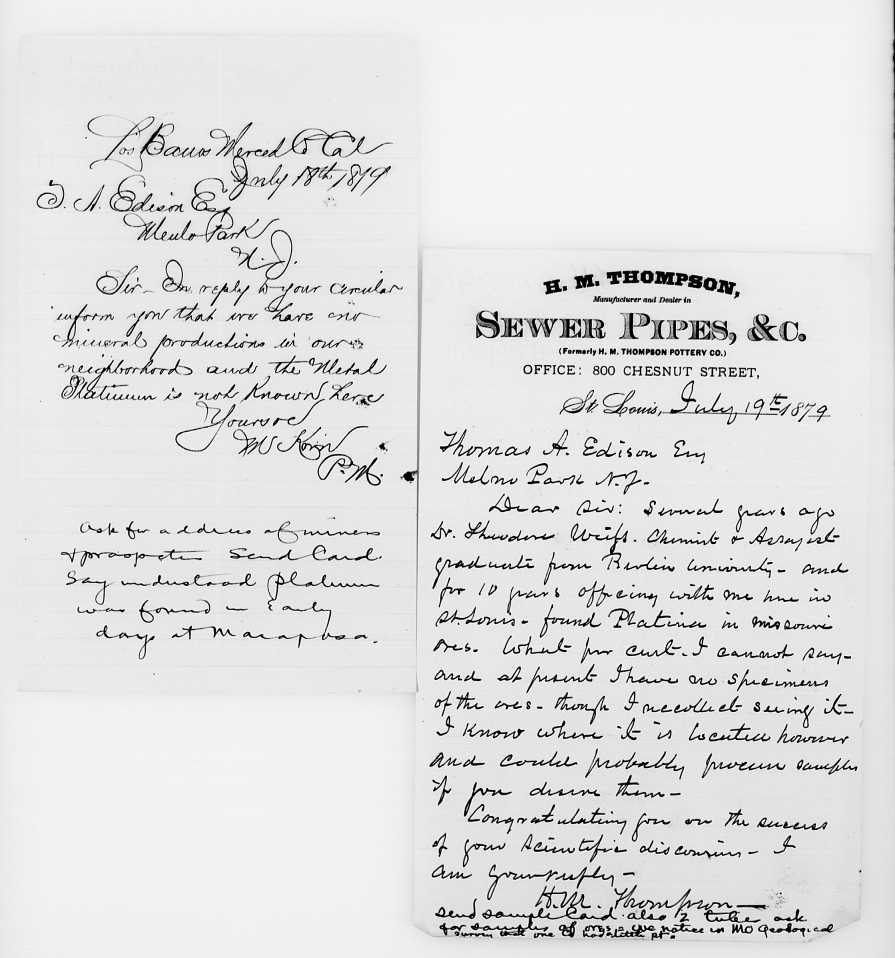 Los Banos Merced Co Cal
July 18th 1879
T. A. Edison Esq
Menlo Park
N. J.
Sir - In reply to your circular
inform you that we have no
mineral productions in our
neighborhood and the Metal
Platinum is not Known here
Yours &c
P. M.
Ask for address of miners
& prospectors Send Card
Say understood platinum
was found in Early
days at Maraposa.
H. M. THOMPSON,
Manufacturer and Dealer in
SEWER PIPES, &C.
(Formerly H. M. THOMPSON POTTERY CO.)
OFFICE: 800 CHESNUT STREET,
St. Louis, July 19th 1879
Thomas A. Edison Esq
Melno Park N.J.
Dear Sir: Several years ago
Dr. Theodore Weifs. Chemist & Assayist
graduate from Berlin University - and
for 10 years officing with me here in
St Louis - found Platina in Missouri
ores. What per cent. I cannot say -
and at present I have no specimens
of the ores - though I reccollect seeing it -
I know where it is located however
and could probably procure samples
if you desire them -
Congratulating you on the success
of your Scientific discoveries - I
am yours resptfly -
H. M. Thompson
Send sample Card also 2 tubes ask
for samples of ores - we notice in MO Geological
survey that one